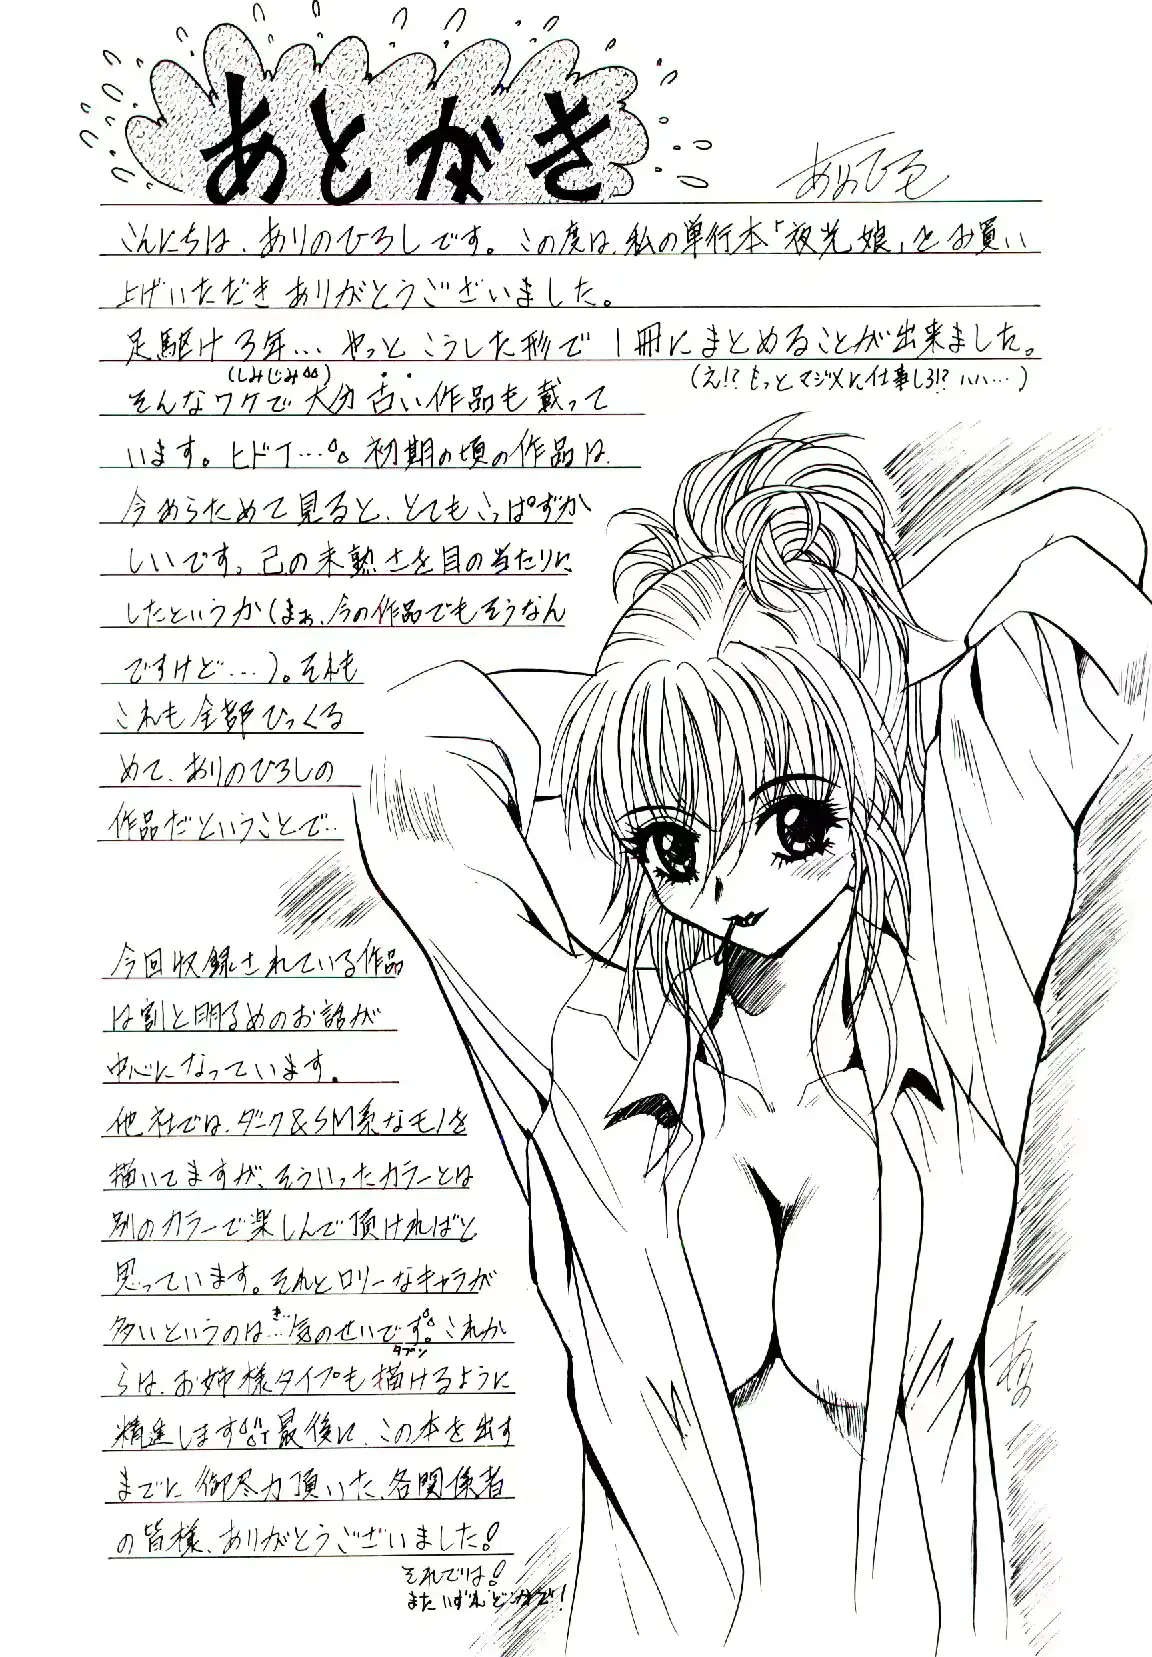 あとがき
ありのひろし
こんにちは、ありのひろしです。この度は、私の単行本「夜光娘」をお買い
上げいただきありがとうございました。
足駆け3年…やっとこうした形で1冊にまとめることが出来ました。
(しみじみ) (え!?もっとマジメに仕事しろ!?ハハ…)
そんなワケで大分古い作品も載って
います。ヒドイ…初期の頃の作品は、
今あらためて見ると、とてもこっぱずか
しいです。己の未熟さを目の当たりに
したというか(まぁ、今の作品でもそうなん
ですけど…)。それも
これも全部ひっくる
めて、ありのひろしの
作品だということで…
今回収録されている作品
は割と明るめのお話が
中心になっています。
他社では、ダーク&SM系なモノを
描いてますが、そういったカラーとは
別のカラーで楽しんで頂ければと
思っています。それとロリーなキャラが
多いというのは…気のせいです。これか
き…
タブン
らは、お姉様タイプも描けるように
精進します 最後に、この本を出す
までに御尽力頂いた、各関係者
の皆様、ありがとうございました!
それでは!
またいずれどこかで!